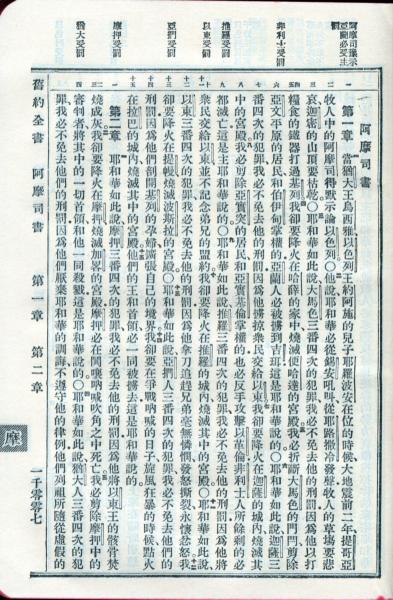 阿摩司豫示
亞蘭必受
罰
非利士受罰
推羅受罰
以東受罰
亞捫受罰
摩押受罰
猶大受罰
阿摩司書
第一章 當猶大王烏西雅以色列王約阿施的兒子耶羅波安在位的時候大地震前二年提哥亞
牧人中的阿摩司得默示論以色列〇他說耶和華必從錫安吼叫從耶路撒冷發聲牧人的草場要悲
哀迦密的山頂要枯乾〇耶和華如此說大馬色三番四次的犯罪我必不免去他的刑罰因為他以打
糧食的鐵器打過基列我卻要降火在哈薛的家中燒滅便哈達的宮殿我必折斷大馬色的門閂剪除
亞文平原的居民和伯伊甸掌權的亞蘭人必被擄到吉珥這是耶和華說的〇耶和華如此說迦薩三
番四次的犯罪我必不免去他的刑罰因為他擄掠衆民交給以東我卻要降火在迦薩的城內燒滅其
中的宮殿我必剪除亞實突的居民和亞實基倫掌權的也必反手攻擊以革倫非利士人所餘剩的必
都滅亡這是主耶和華說的〇耶和華如此說推羅三番四次的犯罪我必不免去他的刑罰因為他將
衆民交給以東並不記念弟兄的盟約我卻要降火在推羅的城內燒滅其中的宮殿〇耶和華如此說
以東三番四次的犯罪我必不免去他的刑罰因為他拿刀追趕兄弟毫無憐憫發怒撕裂永懷忿怒我
卻要降火在提幔燒滅波斯拉的宮殿〇耶和華如此說亞捫人三番四次的犯罪我必不免去他們的
刑罰因為他們剖開基列的孕婦擴張自己的境界我卻要在爭戰吶喊的日子旋風狂暴的時候點火
在拉巴的城內燒滅其中的宮殿他們的王和首領必一同被擄去這是耶和華說的
第二章 耶和華如此說摩押三番四次的犯罪我必不免去他的刑罰因為他將以東王的骸骨焚
燒成灰我卻要降火在摩押燒滅加畧的宮殿摩押必在鬨嚷吶喊吹角之中死亡我必剪除摩押中的
審判者將其中的一切首領和他一同殺戮這是耶和華說的〇耶和華如此說猶大人三番四次的犯
罪我必不免去他們的刑罰因為他們厭棄耶和華的訓誨不遵守他的律例他們列祖所隨從虛假的
舊約全書 阿摩司書 第一章 第二章
摩
一千零零七